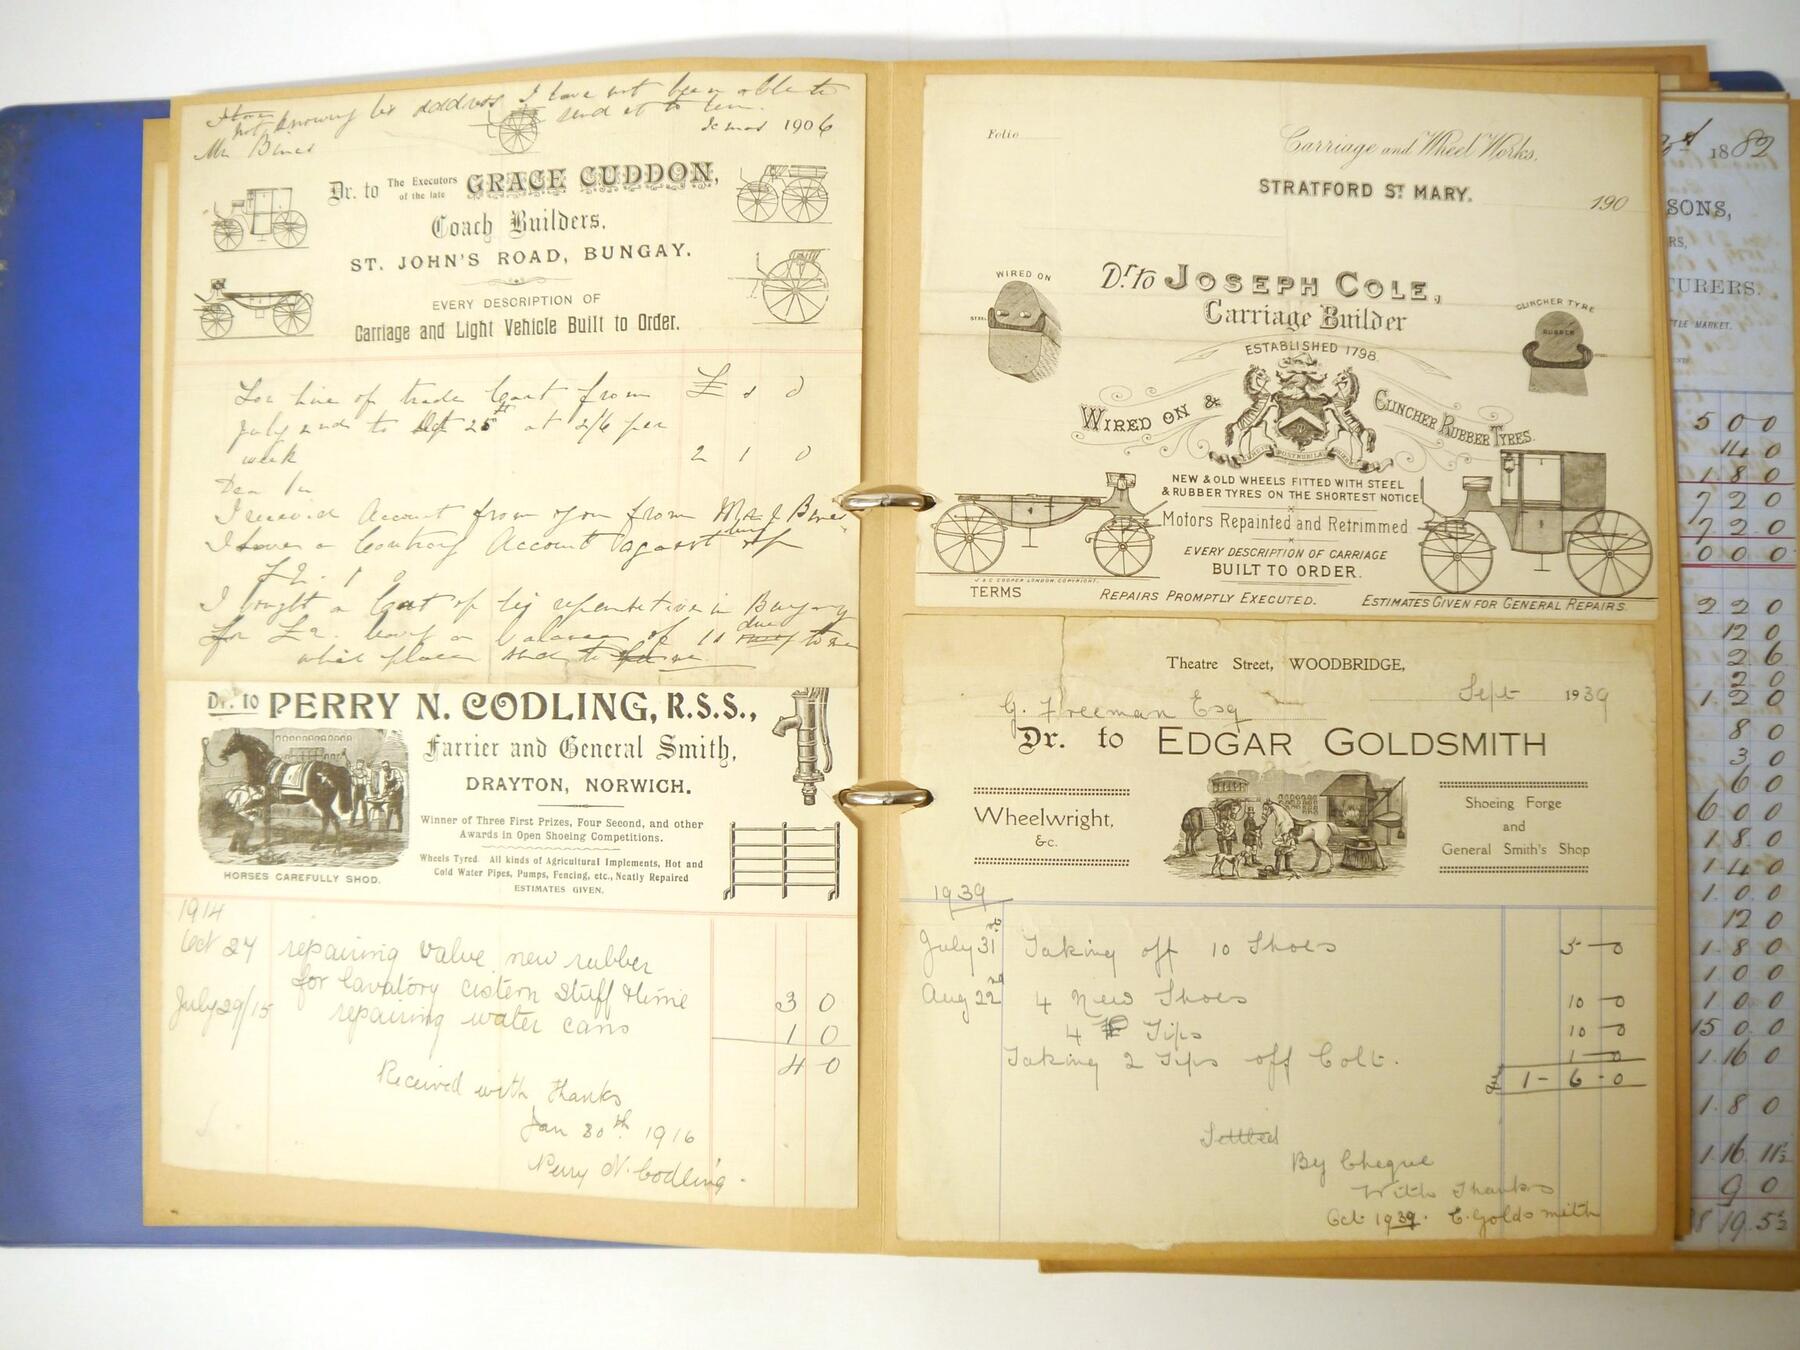 not knowing his address I have not been able to
send it to him.
1906
Dr. to The Executors of the late GRACE CUDDON,
Coach Builders,
ST. JOHN'S ROAD, BUNGAY.
EVERY DESCRIPTION OF
Carriage and Light Vehicle Built to Order.
For hire of trade Cart from £ s d
July 2nd to Oct 25th at 2/6 per
week 2 1 0
Dear Sir
I received Account from you from Mr J
I have a Contrary Account against
£2. 1 0
I bought a Cart of his representative in Bungay
for £2. leaving a balance of 1/ due to me
which please send to me
Dr. to PERRY N. CODLING, R.S.S.,
Farrier and General Smith,
DRAYTON, NORWICH.
Winner of Three First Prizes, Four Second, and other
Awards in Open Shoeing Competitions.
Wheels Tyred. All kinds of Agricultural Implements, Hot and
Cold Water Pipes, Pumps, Fencing, etc., Neatly Repaired
ESTIMATES GIVEN.
HORSES CAREFULLY SHOD.
1914
Oct 27 repairing valve new rubber
for lavatory cistern stuff & time 3 0
July 29/15 repairing water cans 1 0
4 0
Received with thanks
Jan 30th 1916
Perry N. Codling.
Folio
Carriage and Wheel Works.
STRATFORD ST. MARY.
190
Dr. to JOSEPH COLE,
Carriage Builder
ESTABLISHED 1798.
WIRED ON
STEEL
CLINCHER TYRE
RUBBER
WIRED ON & CLINCHER RUBBER TYRES.
NEW & OLD WHEELS FITTED WITH STEEL
& RUBBER TYRES ON THE SHORTEST NOTICE
Motors Repainted and Retrimmed
EVERY DESCRIPTION OF CARRIAGE
BUILT TO ORDER.
J & C COOPER LONDON. COPYRIGHT.
TERMS REPAIRS PROMPTLY EXECUTED. ESTIMATES GIVEN FOR GENERAL REPAIRS.
Theatre Street, WOODBRIDGE,
Sept 1939
G. Freeman Esq
Dr. to EDGAR GOLDSMITH
Wheelwright,
&c.
Shoeing Forge
and
General Smith's Shop
1939
July 31st Taking off 10 Shoes 5-0
Aug 22nd 4 New Shoes 10-0
4 Tips 10-0
Taking 2 Tips off Colt. 1-0
£ 1-6-0
Settled
By Cheque
With Thanks
Oct 1939. E. Goldsmith
1882
SONS,
RS,
TURERS.
TLE MARKET.
5 0 0
14 0
1.8.0
7 2 0
7 2 0
0 0 0
2 2 0
12 0
2 6
2 0
1.2 0
8 0
3 0
6 0
6 0 0
1.8.0
1.4 0
1.0.0
12 0
1.8.0
1 0 0
1 0 0
15 0.0
1.16 0
1.8 0
1.16 11½
9 0
19.5½